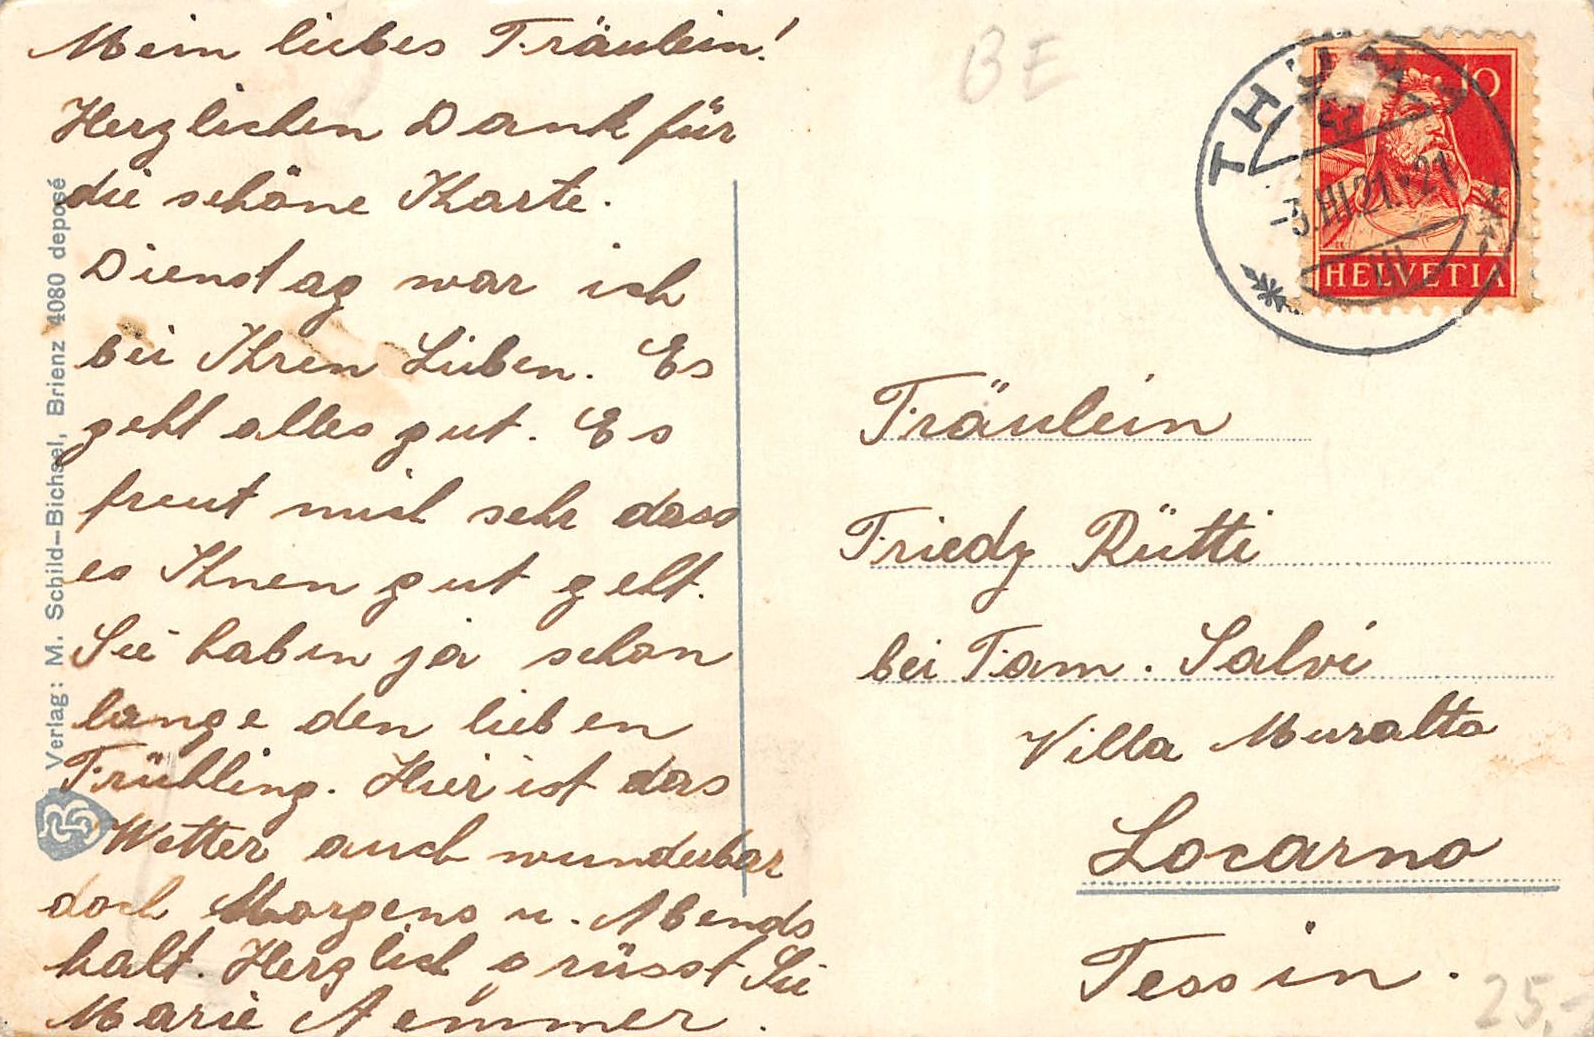 Mein liebes Fräulein!
Herzlichen Dank für
die schöne Karte.
Dienstag war ich
bei Ihren Lieben. Es
geht alles gut. Es
freut mich sehr dass
es Ihnen gut geht.
Sie haben ja schon
lange den lieben
Frühling. Hier ist das
Wetter auch wunderbar
doch Morgens u. Abends
kalt. Herzlich grüsst Sie
Marie Aemmer.
Verlag: M. Schild-Bichsel, Brienz 4080 deposé
BE
THUN
-3.III.21.-21
III
10
HELVETIA
Fräulein
Friedy Rütti
bei Fam. Salvi
Villa Muralto
Locarno
Tessin.
25.-